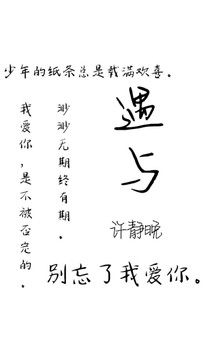 少年的纸条总是载满欢喜。
遇与
渺渺无期终有期。
我爱你,是不被否定的。
许静晚
别忘了我爱你。